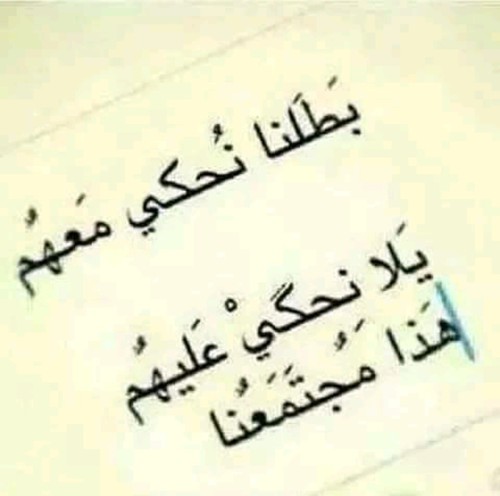 بَطَلَنا نُحكي مَعهُم
يَلا نحكَيْ عَليهُم
هَذا مَجُتَمَعُنا